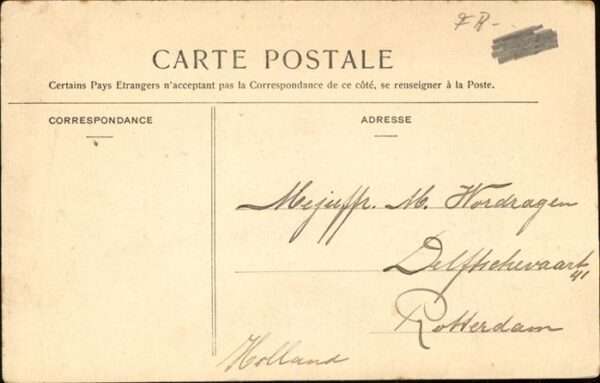 CARTE POSTALE
Certains Pays Etrangers n'acceptant pas la Correspondance de ce côté, se renseigner à la Poste.
CORRESPONDANCE
ADRESSE
Mejuffr. M. Wordragen
Delftschevaart
41
Rotterdam
Holland